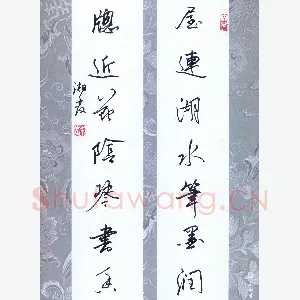 屋連湖水筆墨潤
牕近花陰琴書香
湘表
Shufawang.CN